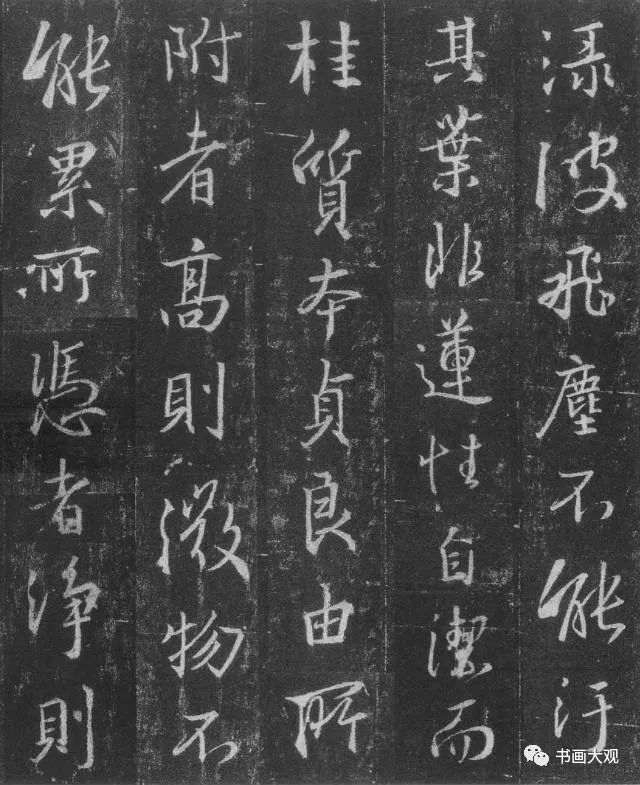 渌波飛塵不能汙
其葉非蓮性自潔而
桂質本貞良由所
附者高則微物不
能累所憑者淨則
书画大观